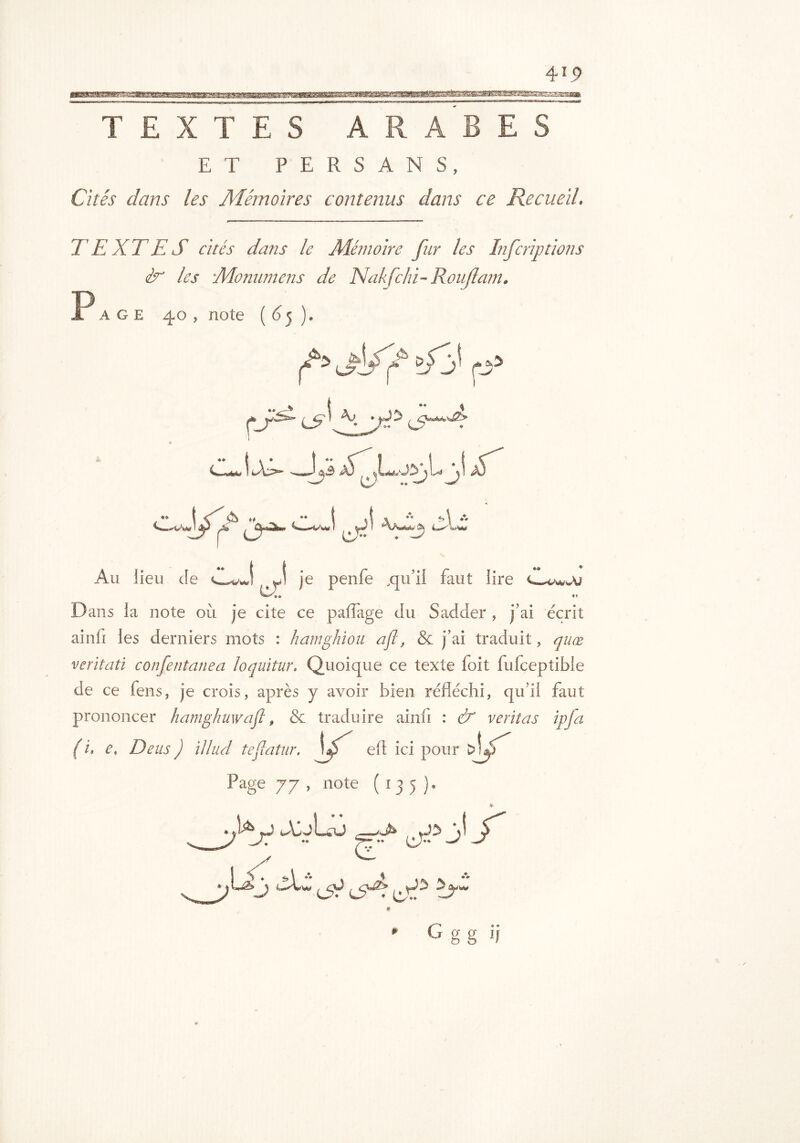 419
TEXTES ARABES
ET PERSANS,
Cités dans les Mémoires contenus dans ce Recueil.
TEXTES cités dans le Mémoire ſur les Inſcriptions
& les Monumens de Nakſchi-Rouſtam.
PAGE 40, note (65).
دهم
كه از كه قول خداست
شك اين است هم كواست
Au lieu de اين است je penſe qu'il faut lire
Dans la note où je cite ce paſſage du Sadder, j'ai écrit
ainſi les derniers mots : hamghiou aſt, & j'ai traduit, quæ
veritati conſentanea loquitur. Quoique ce texte ſoit ſuſceptible
de ce ſens, je crois, après y avoir bien réfléchi, qu'il faut
prononcer hamghuwaſt, & traduire ainſi : & veritas ipſa
(i. e. Deus) illud teſtatur. كوا eſt ici pour كواه
Page 77, note (135).
كر از دين هيچ
شود دين بهى بى شك
Ggg ij